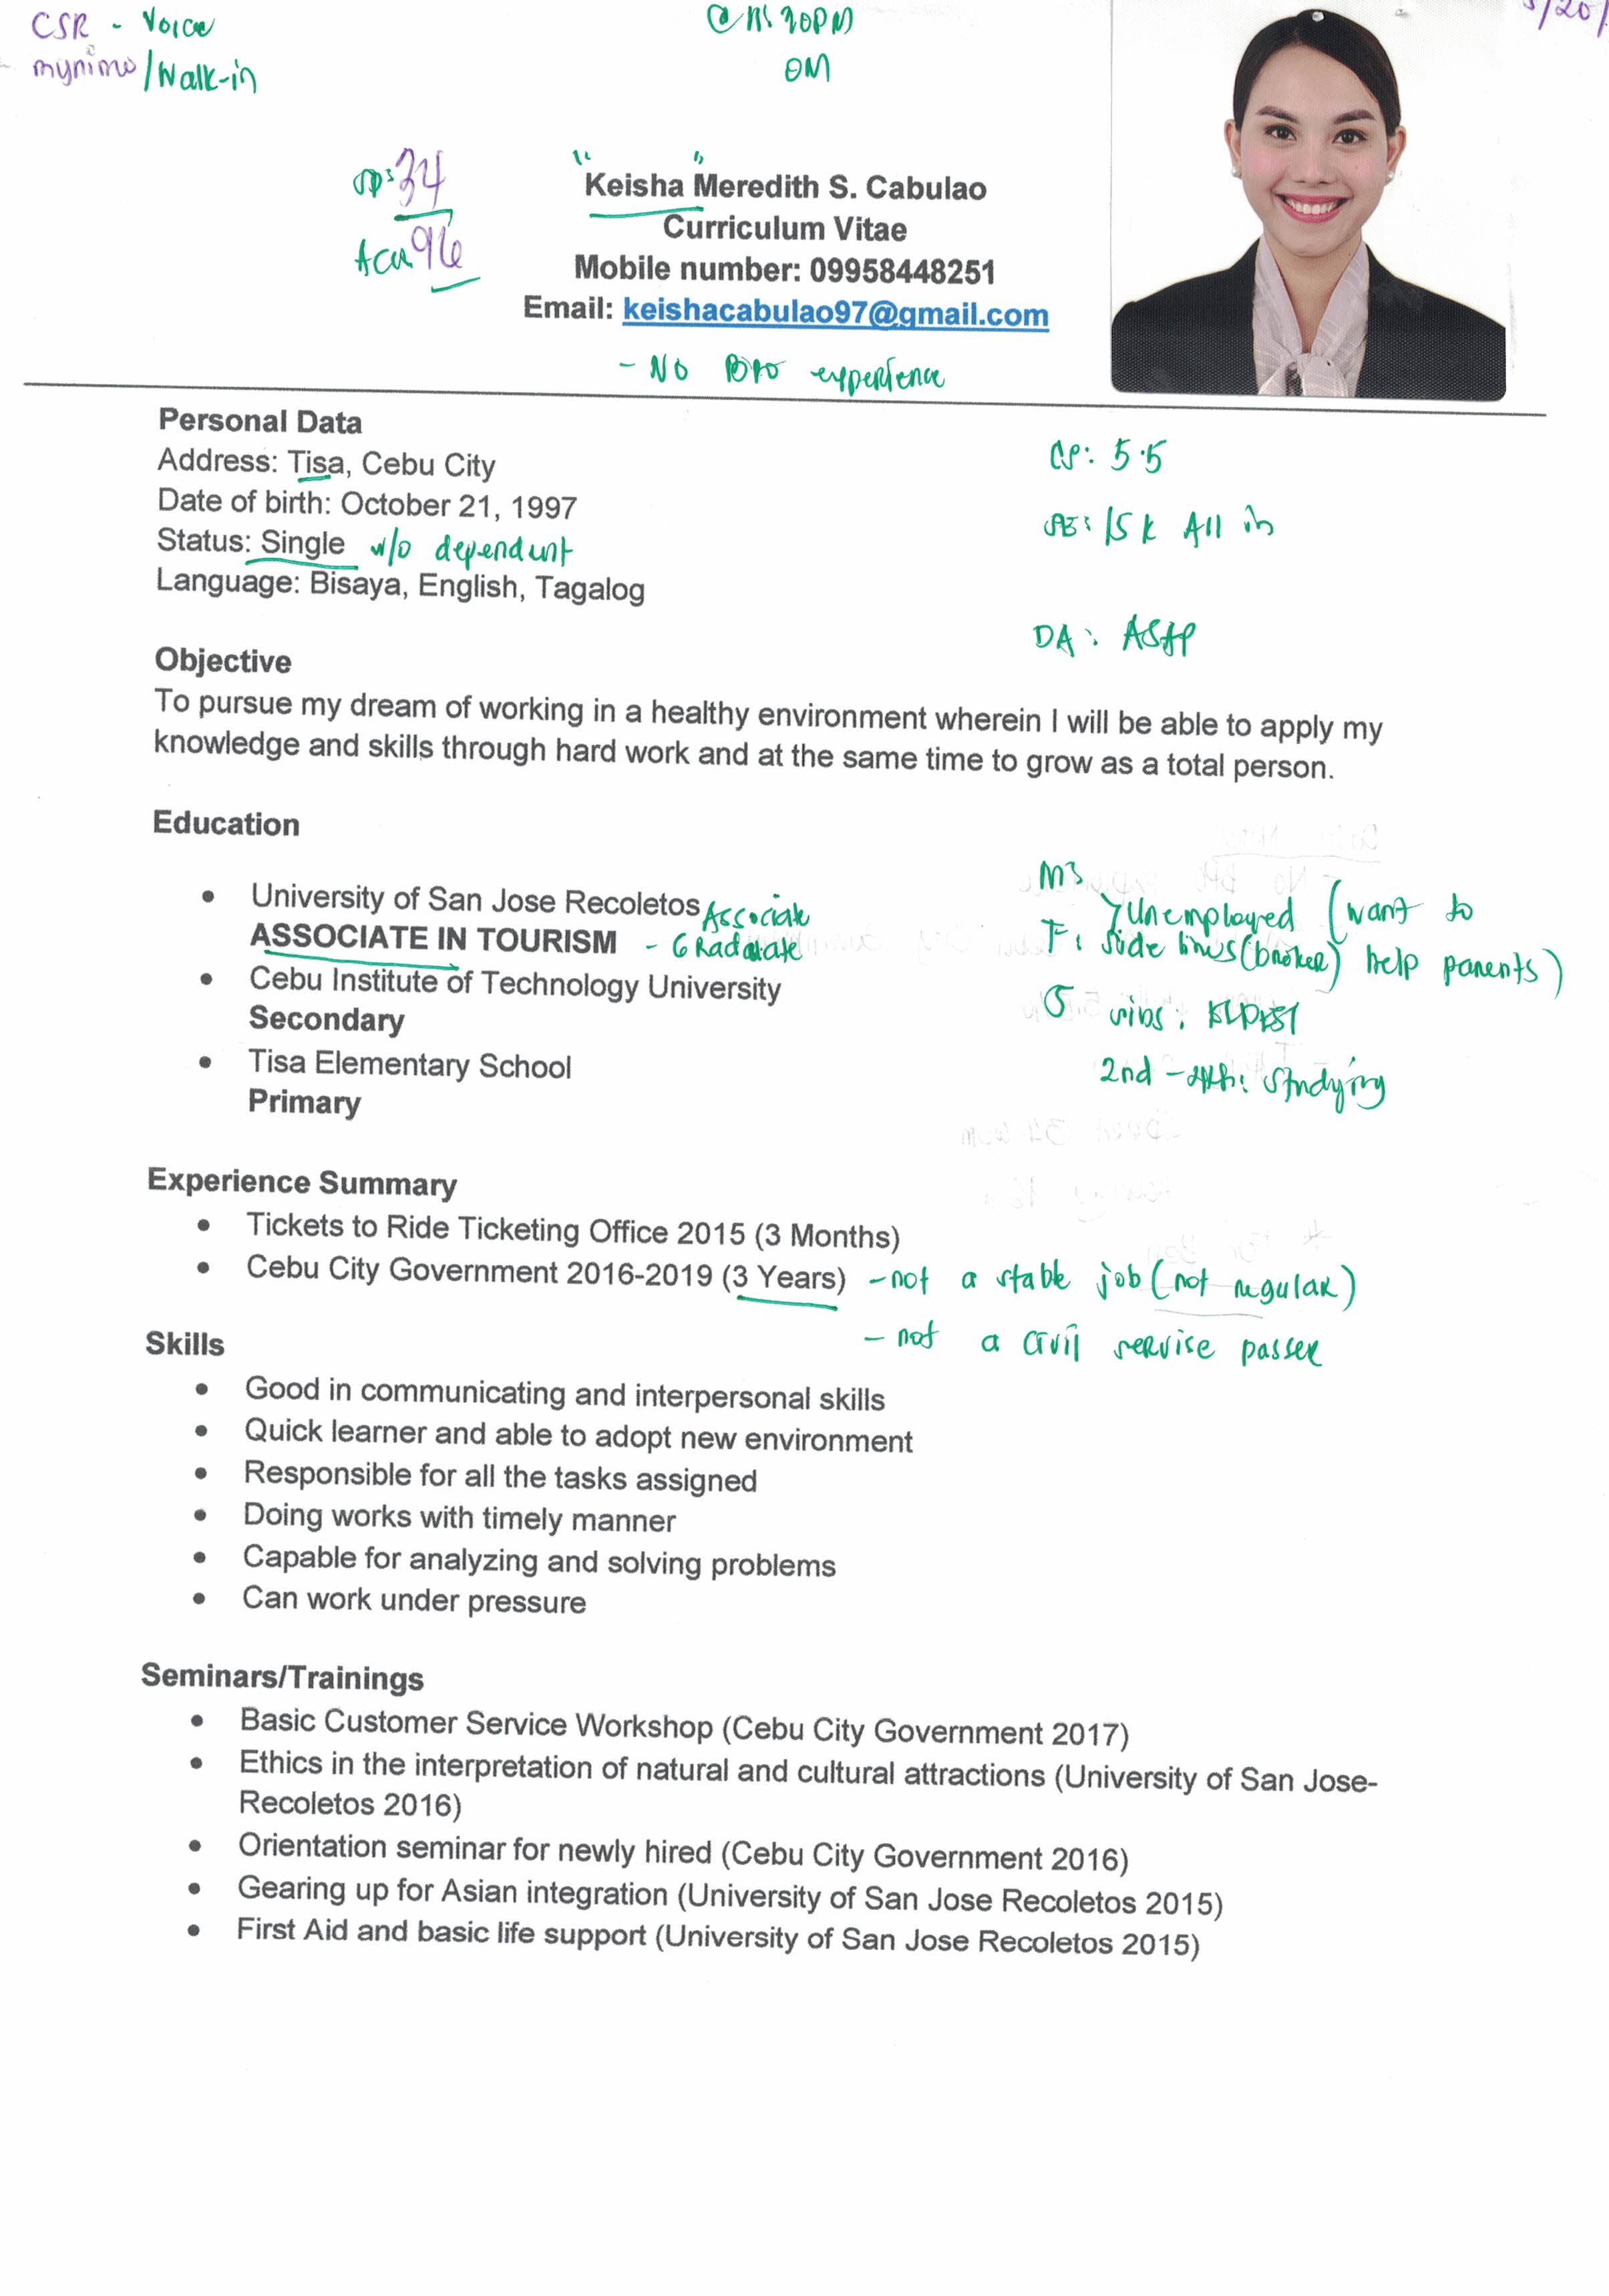 CSR - Voice
mynimo/Walk-in
OM
34
96
"Keisha" Meredith S. Cabulao
Curriculum Vitae
Mobile number: 09958448251
Email: keishacabulao97@gmail.com
- No BPO experience
Personal Data
Address: Tisa, Cebu City
Date of birth: October 21, 1997
Status: Single w/o dependent
Language: Bisaya, English, Tagalog
5.5
15k All in
DA: ASAP
Objective
To pursue my dream of working in a healthy environment wherein I will be able to apply my
knowledge and skills through hard work and at the same time to grow as a total person.
Education
• University of San Jose Recoletos Associate
ASSOCIATE IN TOURISM - Graduate
• Cebu Institute of Technology University
Secondary
• Tisa Elementary School
Primary
M
Unemployed (want to
F: side lines (broker) help parents)
S sibs: ELDEST
2nd - 4th: studying
Experience Summary
• Tickets to Ride Ticketing Office 2015 (3 Months)
• Cebu City Government 2016-2019 (3 Years) - not a stable job (not regular)
- not a civil service passer
Skills
• Good in communicating and interpersonal skills
• Quick learner and able to adopt new environment
• Responsible for all the tasks assigned
• Doing works with timely manner
• Capable for analyzing and solving problems
• Can work under pressure
Seminars/Trainings
• Basic Customer Service Workshop (Cebu City Government 2017)
• Ethics in the interpretation of natural and cultural attractions (University of San Jose-
Recoletos 2016)
• Orientation seminar for newly hired (Cebu City Government 2016)
• Gearing up for Asian integration (University of San Jose Recoletos 2015)
• First Aid and basic life support (University of San Jose Recoletos 2015)